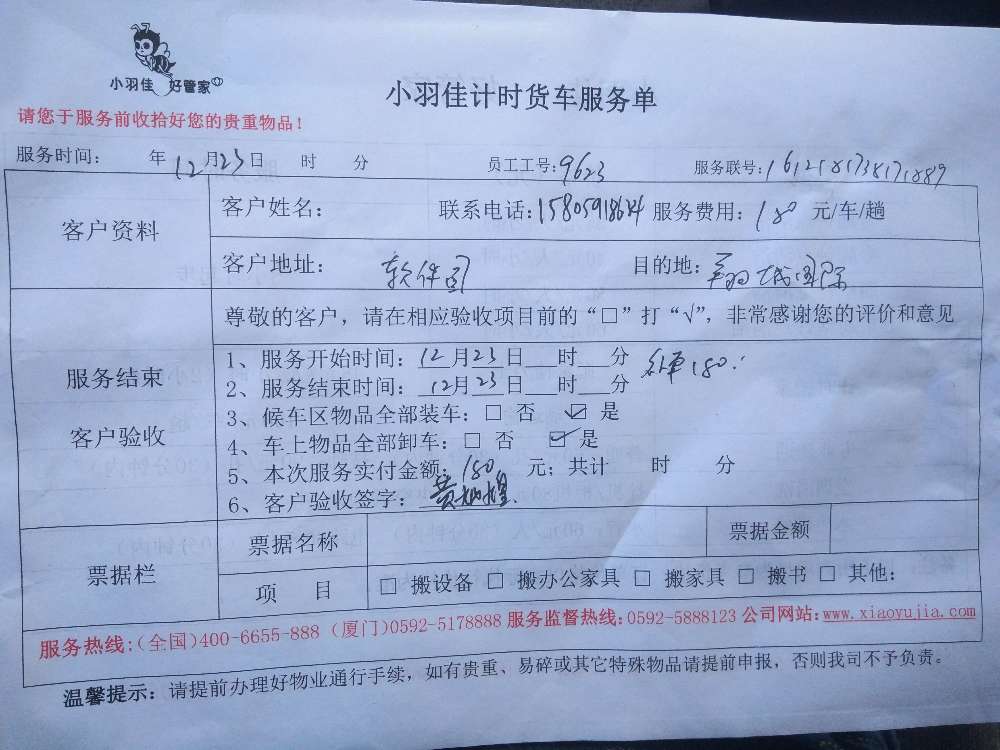 小羽佳 好管家
小羽佳计时货车服务单
请您于服务前收拾好您的贵重物品！
服务时间： 年12月23日 时 分 员工工号：9623 服务联号：
客户资料
客户姓名： 联系电话： 服务费用：180 元/车/趟
客户地址：软件园 目的地：
服务结束
客户验收
尊敬的客户，请在相应验收项目前的“□”打“√”，非常感谢您的评价和意见
1、服务开始时间：12月23日 时 分
180.
2、服务结束时间：12月23日 时 分
3、候车区物品全部装车：□ 否 ☑ 是
4、车上物品全部卸车：□ 否 ☑ 是
5、本次服务实付金额：180 元；共计 时 分
6、客户验收签字：黄
票据栏
票据名称 票据金额
项 目 □ 搬设备 □ 搬办公家具 □ 搬家具 □ 搬书 □ 其他：
服务热线：(全国)400-6655-888 (厦门)0592-5178888 服务监督热线：0592-5888123 公司网站：www.xiaoyujia.com
温馨提示：请提前办理好物业通行手续，如有贵重、易碎或其它特殊物品请提前申报，否则我司不予负责。